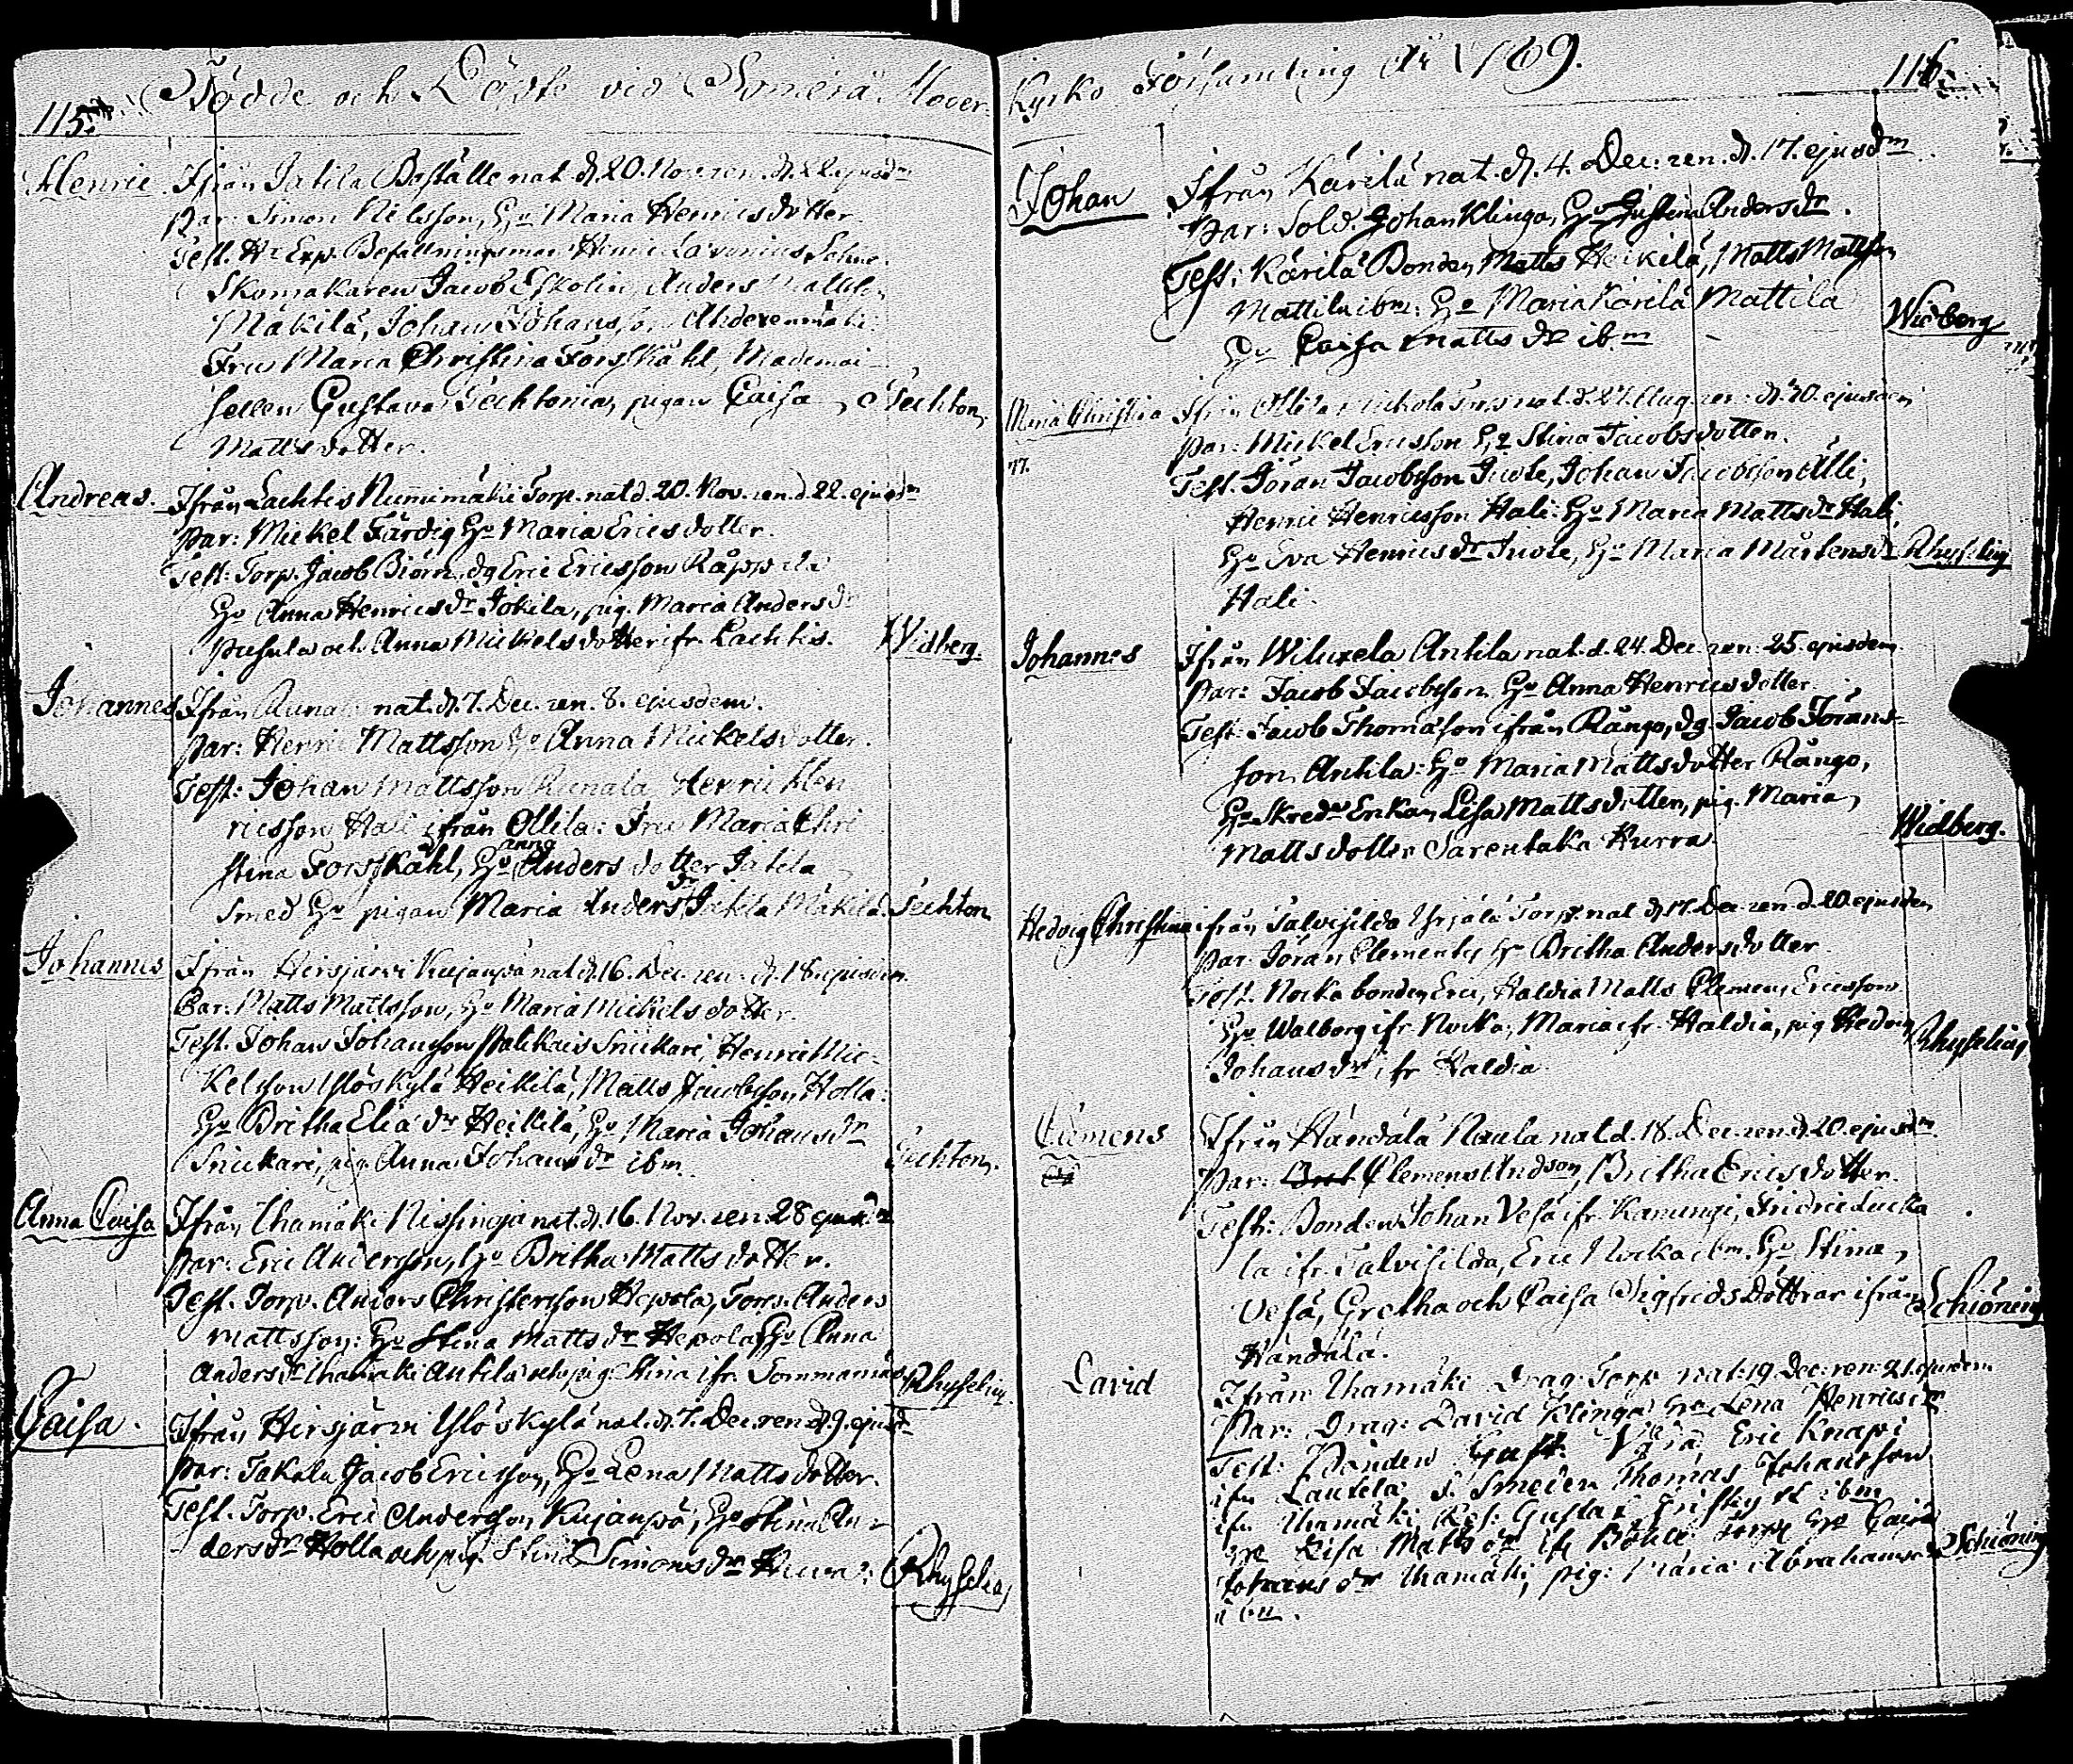 115.
Födde och Döpte vid Somero Moder
Henric
Ifrån Jatila Boställe nat. d. 20. Nov. ren. d. 22. ejusdm
Par: Simon Nilsson, Ho Maria Henricsdotter
Test. Hr Exp. Befallningsman Henric Lavonius, Sahne.
Skomakaren Jacob Eskolin, Anders Matts
Mäkilä, Johan Johansson
Fru Maria Christina Forsskåhl, Mademoi-
sellen Gustava Techtonia, pigan Caisa
Mattsdotter.
Techton.
Andreas.
Ifrån Lachtis Nummimäki Torp. nat d. 20. Nov. ren. d. 22. ejusdm
Par: Mickel Färdig Ho Maria Ericsdotter.
Test: Torp. Jacob Biörn, dg Eric Ericsson
Ho Anna Henricsdr Jokila, pig. Maria Andersdr
Pusula och Anna Mickelsdotter ifr. Lachtis.
Widberg.
Johannes
Ifrån nat. d. 7. Dec. ren. 8. ejusdem.
Par: Henric Mattsson Ho Anna Mickelsdotter.
Test: Johan Mattsson Henric Hen
ricsson Hali ifrån Ollila: Fru Maria Chri
stina Forsskåhl, Ho Anna Andersdotter Jatila
Smed Ho pigan Maria Andersdr Jatila Mäkilä.
Techton
Johannes
Ifrån Hirsjärvi Kujanpä nat d. 16. Dec. ren. d. 18. ejusdem.
Par: Matts Mattsson, Ho Maria Mickelsdotter.
Test. Johan Johansson Palikais Snickari, Henric Mic-
kelsson Ylöskylä Heikilä, Matts Jacobsson Holla:
Ho Britha Eliædr Heikilä, Ho Maria Johansdr
Snickari, pig. Anna Johansdr ibm.
Techton.
Anna Caisa
Ifrån Ihamäki Nissinoja nat. d. 16. Nov. ren. 28 ejusdm
Par: Eric Andersson, Ho Britha Mattsdotter.
Test. Torp. Anders Christersson Hepola, Torp. Anders
Mattsson: Ho Stina Mattsdr Hepola, Ho Anna
Andersdr Ihamäki Antila och pig. Stina ifr.
Rhyselius
Caisa.
Ifrån Hirsjärvi Ylöskylä nat. d. 7. Dec. ren. d. 9. ejusd
Par: Jakala Jacob Ericsson, Ho Lena Mattsdotter.
Test. Torp. Eric Andersson Kujanpä, Ho Stina An-
dersdr Holla och pig. Stina Simonsdr
Rhyselius
Kyrko Församling År 1789.
116.
Johan
Ifrån Kärilä nat. d. 4. Dec: ren. d. 17. ejusdm
Par: Sold. Johan Klinga, Ho Justina Andersdr.
Test: Kärilä Bonden Matts Heikilä, Matts Mattsson
Mattila ibm: Ho Maria Kärilä Mattila
Ho Caisa Mattsdr ibm
Widberg
Maria Christina
Ifrån Ollila Torp nat. d. 27. Aug. ren: d. 30. ejusdem
Par: Mickel Ericsson Ho Stina Jacobsdotter.
Test. Jöran Jacobsson Juole, Johan Jacobsson Älli,
Henric Henricsson Hali: Ho Maria Mattsdr Hali,
Ho Eva Henricsdr Juole, Ho Maria Mårtensdr
Hali.
Rhyselius
Johannes
Ifrån Wiluxela Antila nat. d. 24. Dec. ren. 25. ejusdem.
Par: Jacob Jacobsson Ho Anna Henricsdotter.
Test: Jacob Thomasson ifrån Rångo, dg. Jacob Jörans-
son Antila: Ho Maria Mattsdotter Rångo,
Ho Skreddr Enkan Lisa Mattsdotter, pig. Maria
Mattsdotter Sarentaka Kurra.
Widberg.
Hedvig Christina
ifrån Talvisilda Yrjälä Torp. nat. d. 17. Dec. ren. d. 20. ejusdem
Par: Jöran Clementss. Ho Britha Andersdotter.
Test. Nocka bonden Eric, Haldia Matts Clemens Ericsson
Ho Walborg ifr Nocka, Maria ifr. Haldia, pig Hedvig
Johansdr ifr Haldia.
Rhyselius
Clemens
Ifrån Händälä Naula nat. d. 18. Dec. ren. d. 20. ejusdm
Par: Clemens Andson, Britha Ericsdotter.
Test: Bonden Johan Vesä ifr. Kanungi,
la ifr. Talvisilda, Eric Nocka ibm. Ho Stina
Vesä, Gretha och Caisa Sigfrids Döttrar ifrån
Händälä.
Schiöning
David
Ifrån Ihamäki Drag. Torp nat. 19 Dec. ren. 21. ejusdem
Par: Drag: David Klinga Ho Lena Henricsdr
Test: Bonden Gust. Eric Knapi
ifr. Lautela S. Smeden Thomas Johansson
ifr. Ihamäki Ref: Gustaf Frisk ibm
Ho Lisa Mattsdr ifr Torp Ho Caisa
Johansdr Ihamäki, pig: Maria Abrahamsdr
ibm.
Schiöning